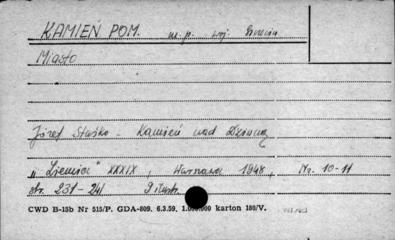 KAMIEŃ POM. m. p. woj. Szczecin
Miasto
Józef Stańko - Kamień nad Dziwną
„Ziemia" XXXIX, Warszawa 1948, Nr. 10-11
str. 231-241 9 ilustr.
CWD B-15b Nr 515/P. GDA-809. 6.3.59. 1.000.000 karton 180/V.